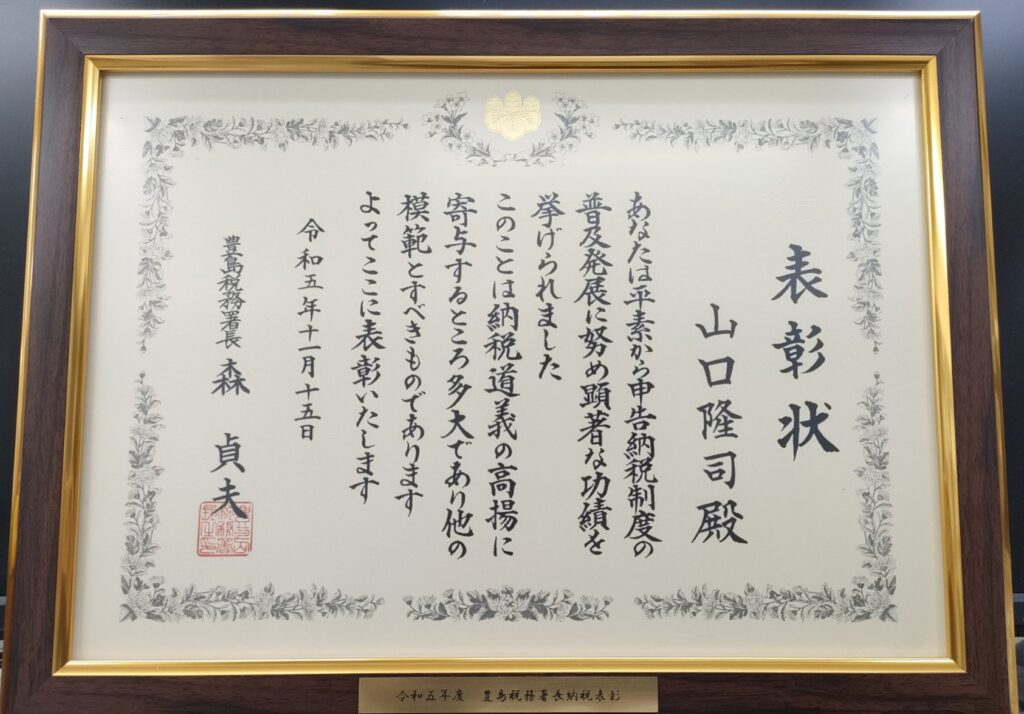 表彰状
山口隆司殿
あなたは平素から申告納税制度の
普及発展に努め顕著な功績を
挙げられました
このことは納税道義の高揚に
寄与するところ多大であり他の
模範とすべきものであります
よってここに表彰いたします
令和五年十一月十五日
豊島税務署長 森 貞夫
令和五年度 豊島税務署長納税表彰